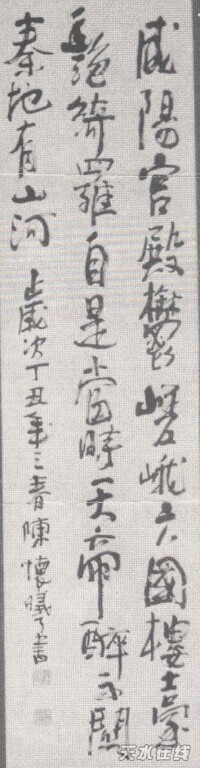 咸陽宮殿鬱嵯峨六國樓臺
艷綺羅自是當時天帝醉不關
秦地有山河 歲次丁丑年三春陳懷曦書
天水在线